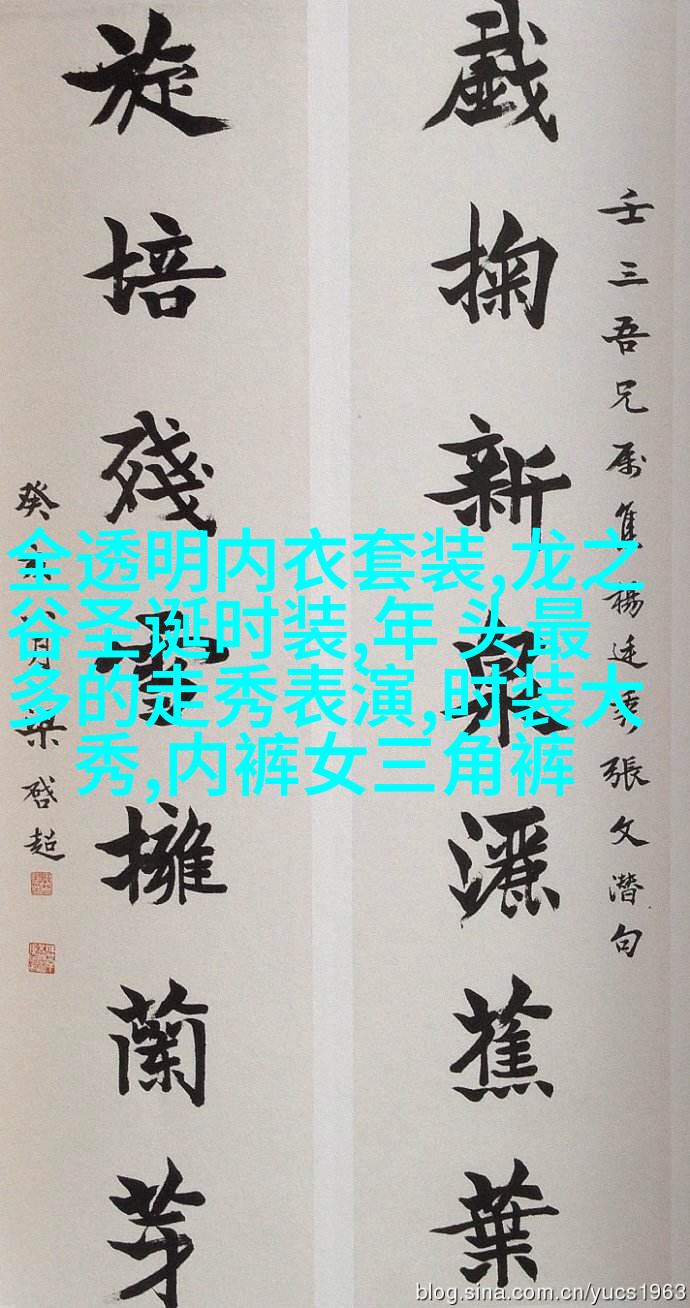 壬三吾兄属集楊廷秀張文潛句
戲掬新泉灑蕉葉
旋培殘雪擁蘭芽
癸亥月梁啓超
全透明内衣套装,龙之
谷圣诞时装,年 头最
多的走秀表演,时装大
秀,内裤女三角裤
blog.sina.com.cn/yucs1963